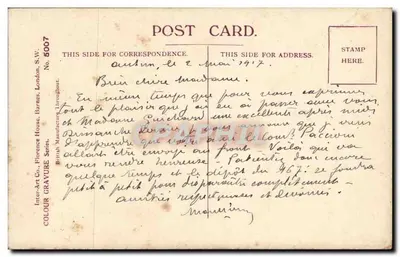 POST CARD.
THIS SIDE FOR CORRESPONDENCE.
THIS SIDE FOR ADDRESS.
STAMP
HERE.
Inter-Art Co., Florence House, Barnes, London, S.W.
COLOUR GRAVURE Series. No. 5007
British Manufacture Throughout.
le 2 Mai 1917.
Bien chère Madame.
En même temps que pour vous exprimer
tout le plaisir que j'ai eu à passer avec vous
et Madame une excellente après midi
que je viens
d'apprendre que votre
allait être envoyé au front. Voilà qui va
vous rendre heureuse. Patientez donc encore
quelque temps et le dépôt du 467
petit à petit pour disparaître complètement.
amitiés respectueuses et dévouées.